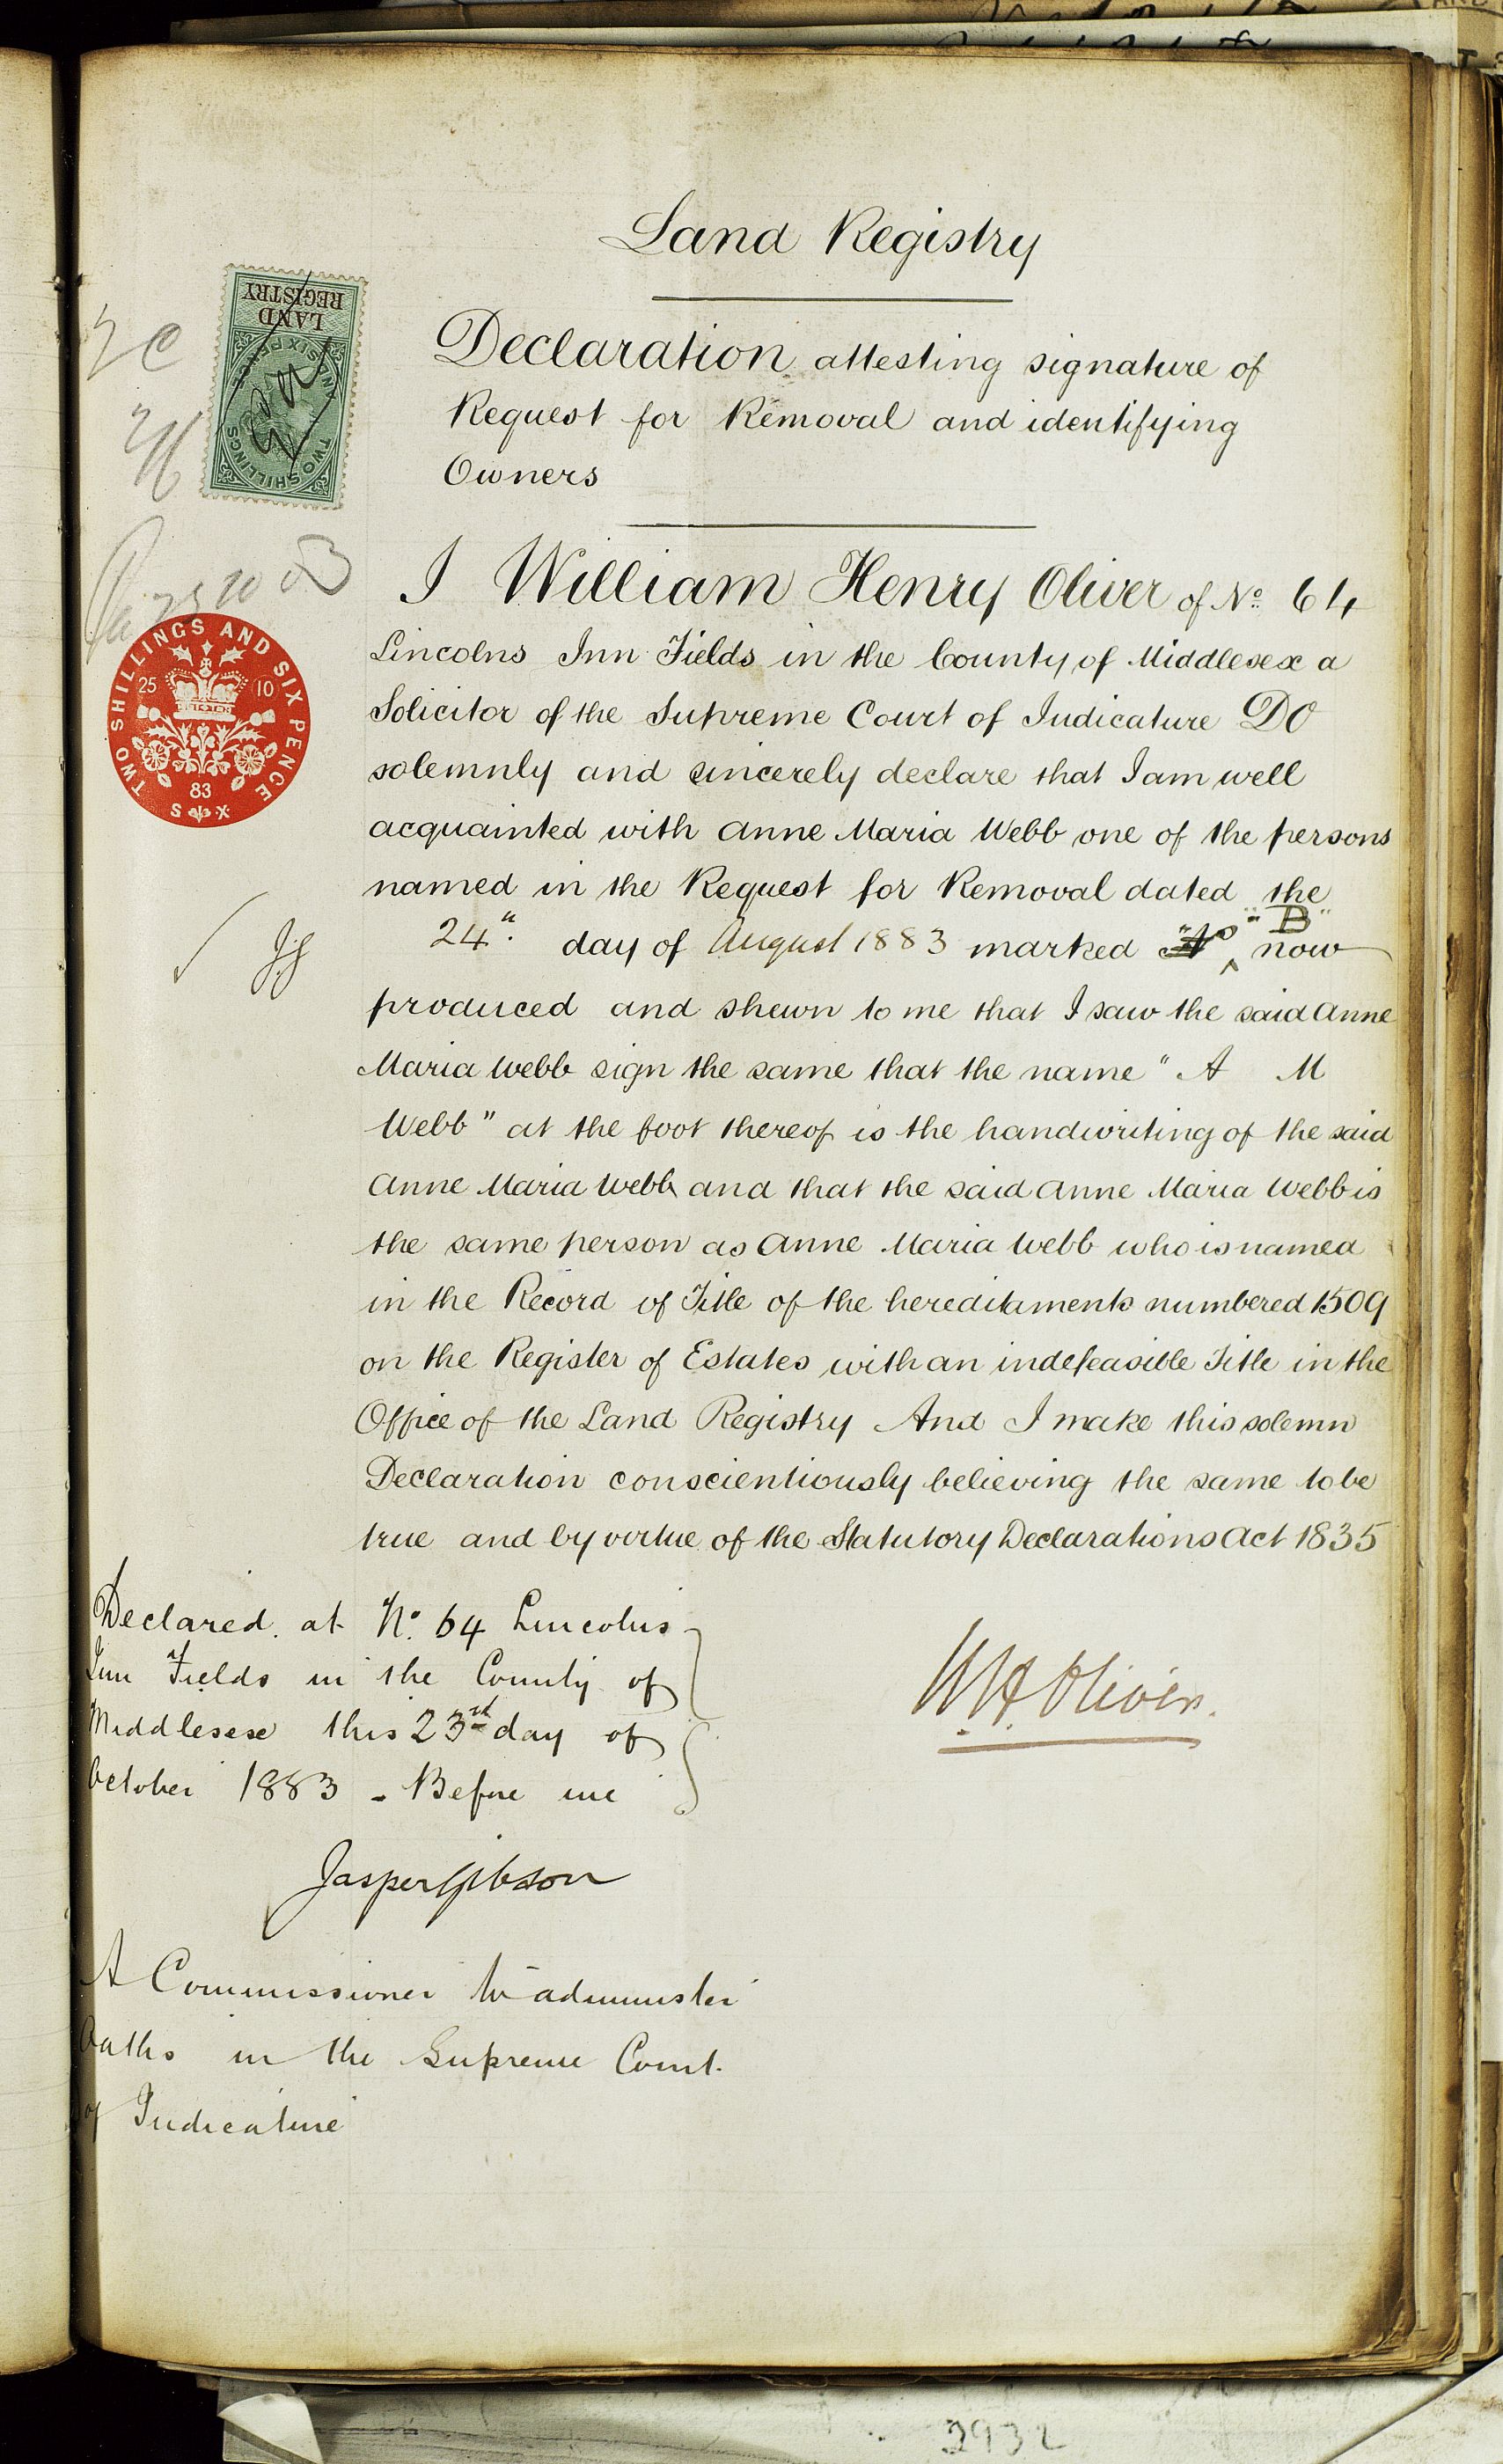 Land Registry
LAND
REGISTRY
TWO SHILLINGS
Declaration attesting signature of
Request for Removal and identifying
Owners
I William Henry Oliver of No. 64
Lincolns Inn Fields in the County of Middlesex a
Solicitor of the Supreme Court of Judicature DO
solemnly and sincerely declare that I am well
acquainted with Anne Maria Webb one of the persons
named in the Request for Removal dated the
24" day of August 1883 marked "A" "B" now
produced and shewn to me that I saw the said Anne
Maria Webb sign the same that the name "A M
Webb" at the foot thereof is the handwriting of the said
Anne Maria Webb and that the said Anne Maria Webb is
the same person as Anne Maria Webb who is named
in the Record of Title of the hereditaments numbered 1509
on the Register of Estates with an indefeasible Title in the
Office of the Land Registry And I make this solemn
Declaration conscientiously believing the same to be
true and by virtue of the Statutory Declarations Act 1835
TWO SHILLINGS AND SIX PENCE
25 10
83
S X
JG
Declared at No. 64 Lincolns
Inn Fields in the County of
Middlesex this 23rd day of
October 1883 - Before me
W H Oliver.
Jasper Gibson
A Commissioner to administer
Oaths in the Supreme Court
of Judicature
2932